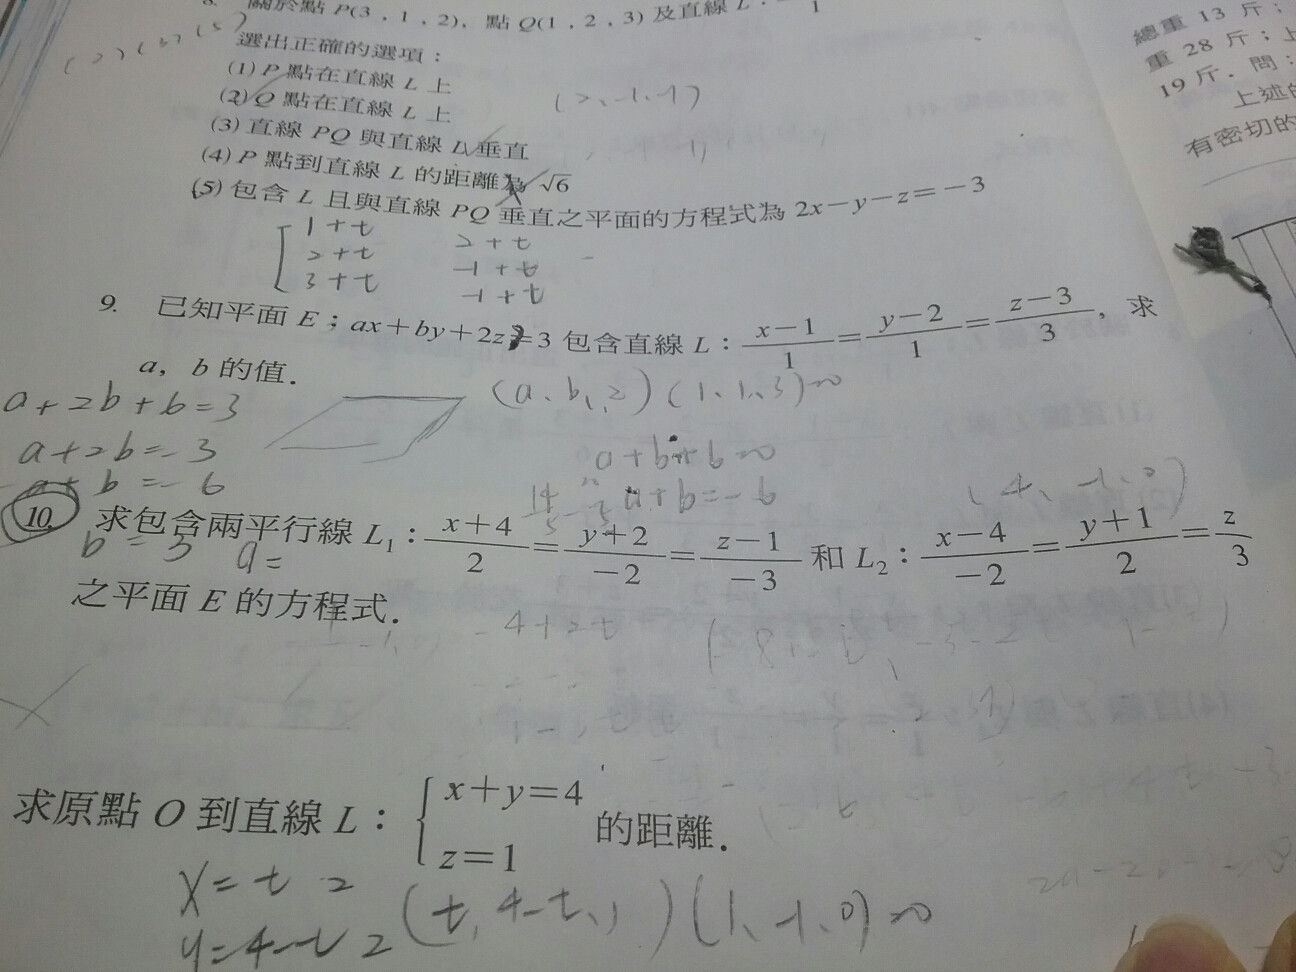 8. 關於點 P(3，1，2)，點 Q(1，2，3) 及直線 L：
選出正確的選項：
(1) P 點在直線 L 上
(2) Q 點在直線 L 上
(3) 直線 PQ 與直線 L 垂直
(4) P 點到直線 L 的距離為 √6
(5) 包含 L 且與直線 PQ 垂直之平面的方程式為 2x−y−z=−3
1+t 2+t
2+t −1+t
3+t −1+t
9. 已知平面 E；ax+by+2z=3 包含直線 L：(x−1)/1=(y−2)/1=(z−3)/3，求
a，b 的值．
(a、b, 2) (1、1、3)=0
a+2b+6=3
a+2b=−3
a+b=−6
b=3 a=
a+b+6=0
a+b=−6
(4、−1、0)
10. 求包含兩平行線 L₁：(x+4)/2=(y+2)/−2=(z−1)/−3 和 L₂：(x−4)/−2=(y+1)/2=z/3
之平面 E 的方程式．
−4+2t
求原點 O 到直線 L：{x+y=4
z=1 的距離．
x=t 2
y=4−t 2
(t, 4−t, 1) (1、−1、0)=0
總重 13 斤；
重 28 斤；上
19 斤．問：
上述的
有密切的